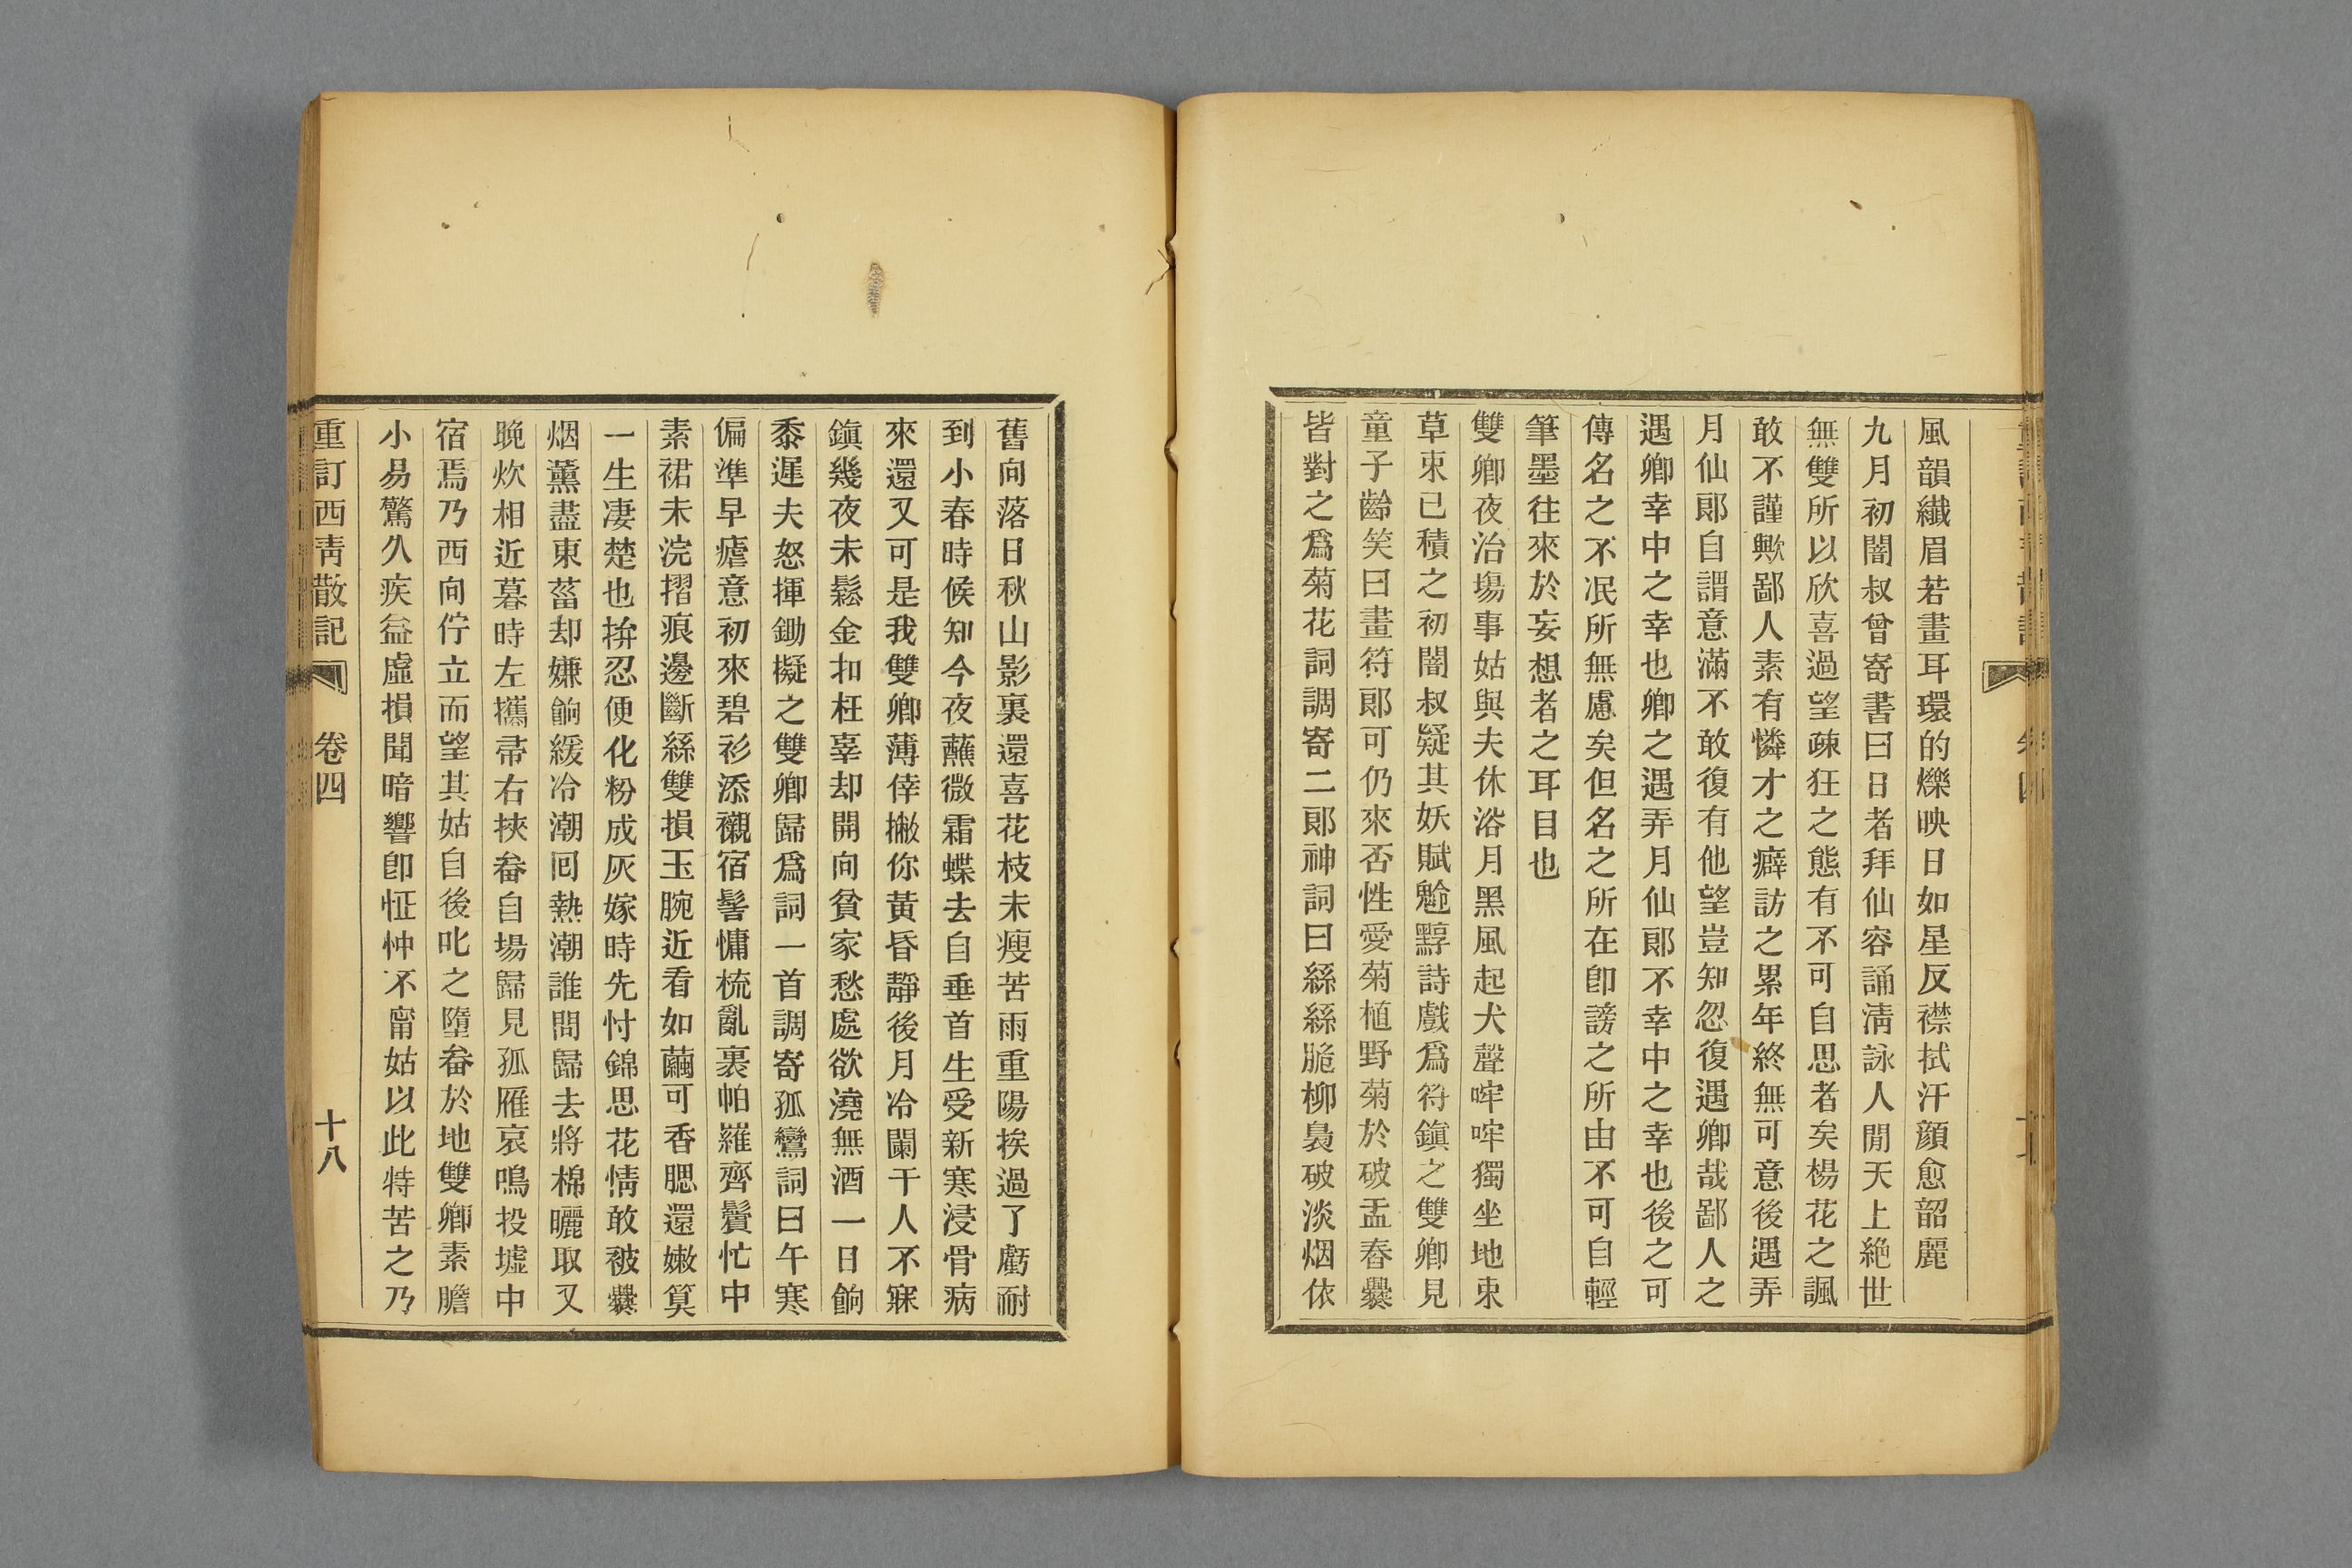 風韻纖眉若畫耳環的爍映日如星反襟拭汗顔愈韶麗
九月初闇叔曾寄書曰日者拜仙容誦淸詠人閒天上絶世
無雙所以欣喜過望疎狂之態有不可自思者矣楊花之諷
敢不謹歟鄙人素有憐才之癖訪之累年終無可意後遇弄
月仙郞自謂意滿不敢復有他望豈知忽復遇卿哉鄙人之
遇卿幸中之幸也卿之遇弄月仙郞不幸中之幸也後之可
傳名之不泯所無慮矣但名之所在卽謗之所由不可自輕
筆墨往來於妄想者之耳目也
雙卿夜治塲事姑與夫休浴月黑風起犬聲㗒㗒獨坐地東
草束已積之初闇叔疑其妖賦魈䵍詩戲爲符鎭之雙卿見
童子齡笑曰畫符郞可仍來否性愛菊植野菊於破盂春爨
皆對之爲菊花詞調寄二郞神詞曰絲絲脆柳裊破淡烟依
舊向落日秋山影裏還喜花枝未瘦苦雨重陽挨過了虧耐
到小春時候知今夜蘸微霜蝶去自垂首生受新寒浸骨病
來還又可是我雙卿薄倖撇你黃昏靜後月冷闌干人不寐
鎭幾夜未鬆金扣枉辜却開向貧家愁處欲澆無酒一日餉
黍遲夫怒揮鋤擬之雙卿歸爲詞一首調寄孤鸞詞曰午寒
偏準早瘧意初來碧衫添襯宿髻慵梳亂裏帕羅齊鬢忙中
素裙未浣摺痕邊斷絲雙損玉腕近看如繭可香腮還嫩算
一生凄楚也拚忍便化粉成灰嫁時先忖錦思花情敢被爨
烟薰盡東菑却嫌餉緩冷潮回熱潮誰問歸去將棉曬取又
晚炊相近暮時左攜帚右挾畚自場歸見孤雁哀鳴投墟中
宿焉乃西向佇立而望其姑自後叱之墮畚於地雙卿素膽
小易驚久疾益虛損聞暗響卽怔忡不甯姑以此特苦之乃
重訂西靑散記
卷四
十八